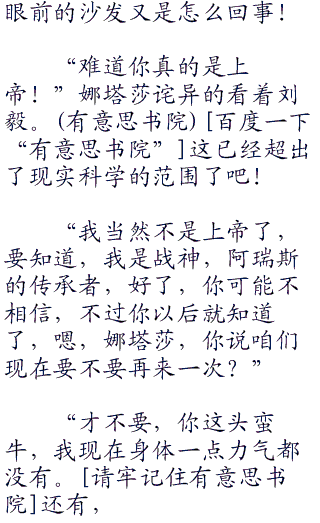 眼前的沙发又是怎么回事！
“难道你真的是上
帝！”娜塔莎诧异的看着刘
毅。(有意思书院) [百度一下
“有意思书院” ]这已经超出
了现实科学的范围了吧！
“我当然不是上帝了，
要知道，我是战神，阿瑞斯
的传承者，好了，你可能不
相信，不过你以后就知道
了，嗯，娜塔莎，你说咱们
现在要不要再来一次？”
“才不要，你这头蛮
牛，我现在身体一点力气都
没有。[请牢记住有意思书
院]还有，